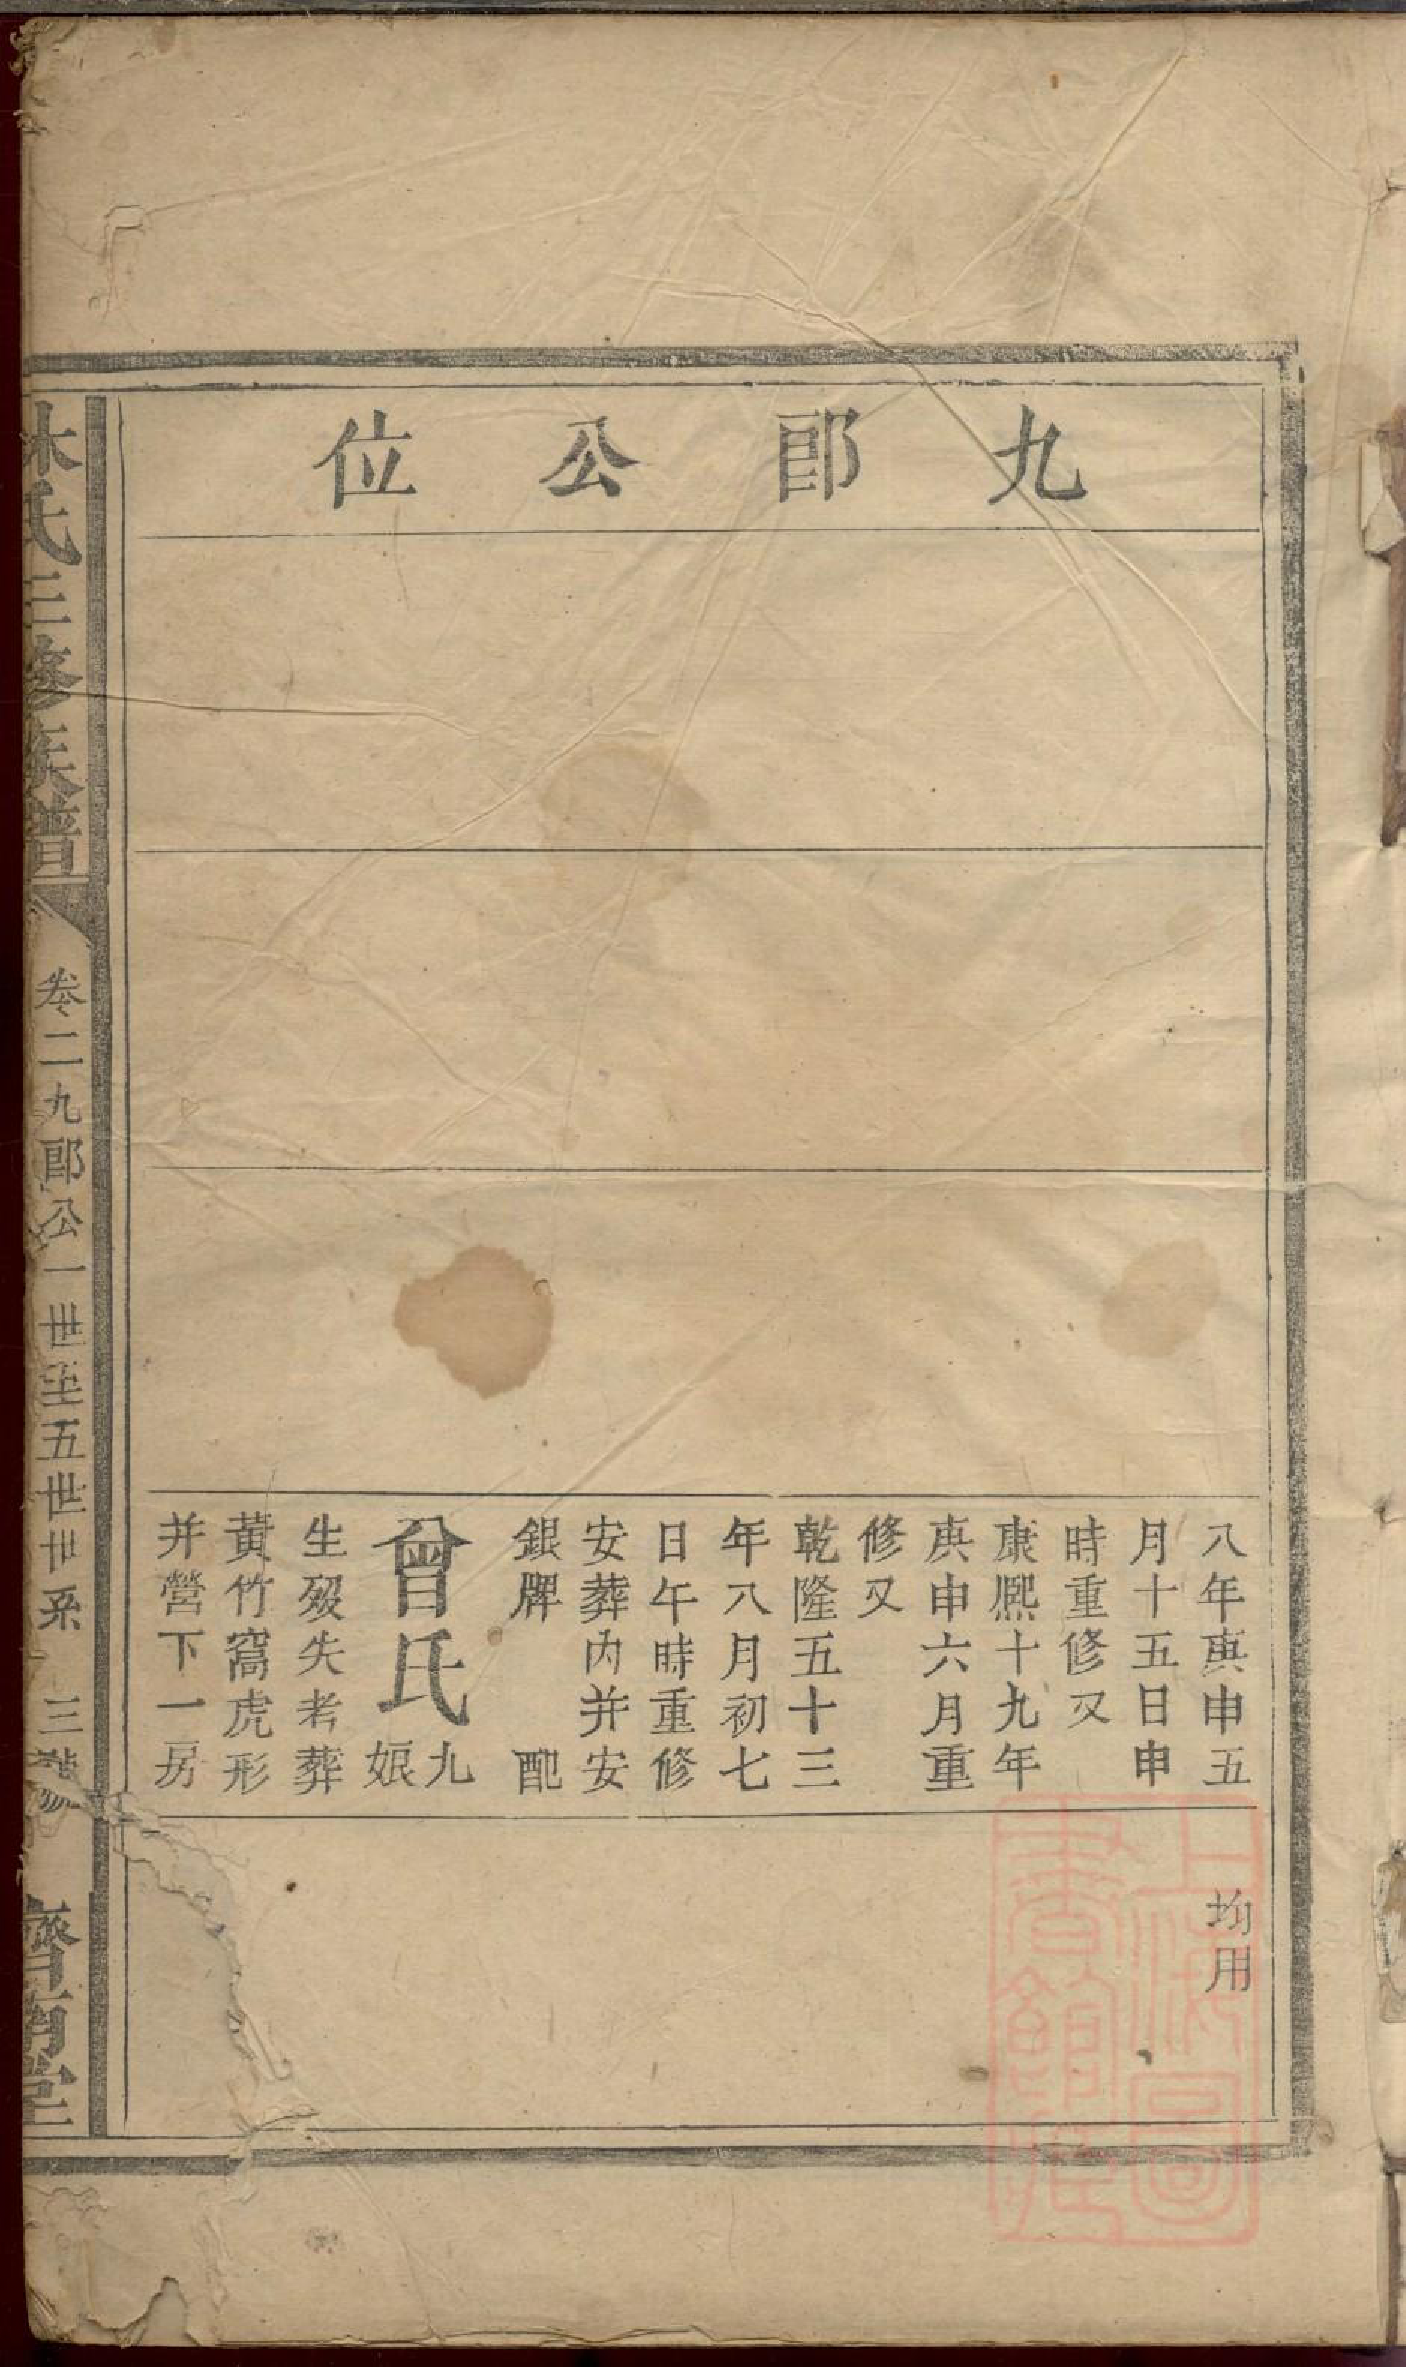 九郎公位
八年庚申五
月十五日申
時重修又
康熙十九年
庚申六月重
修又
乾隆五十三
年八月初七
日午時重修
安葬内并安
銀牌　配
曾氏九娘
生殁失考葬
黃竹窩虎形
并營下一房
均用
林氏三修族譜
卷二九郎公一世至五世世系　三號
濟南堂
上海圖書館藏